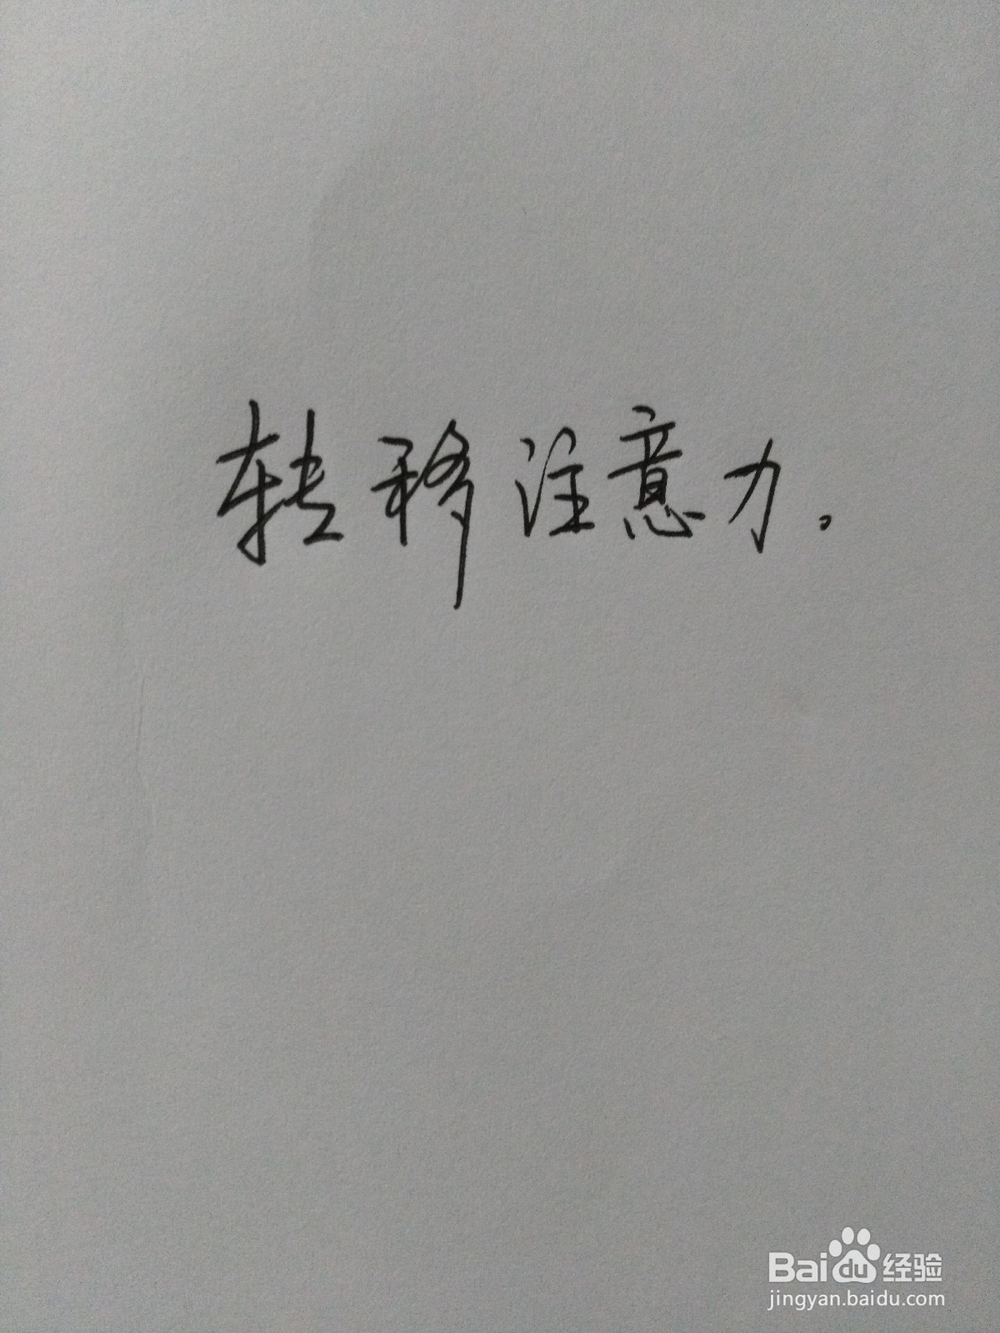 转移注意力。
Baidu经验
jingyan.baidu.com